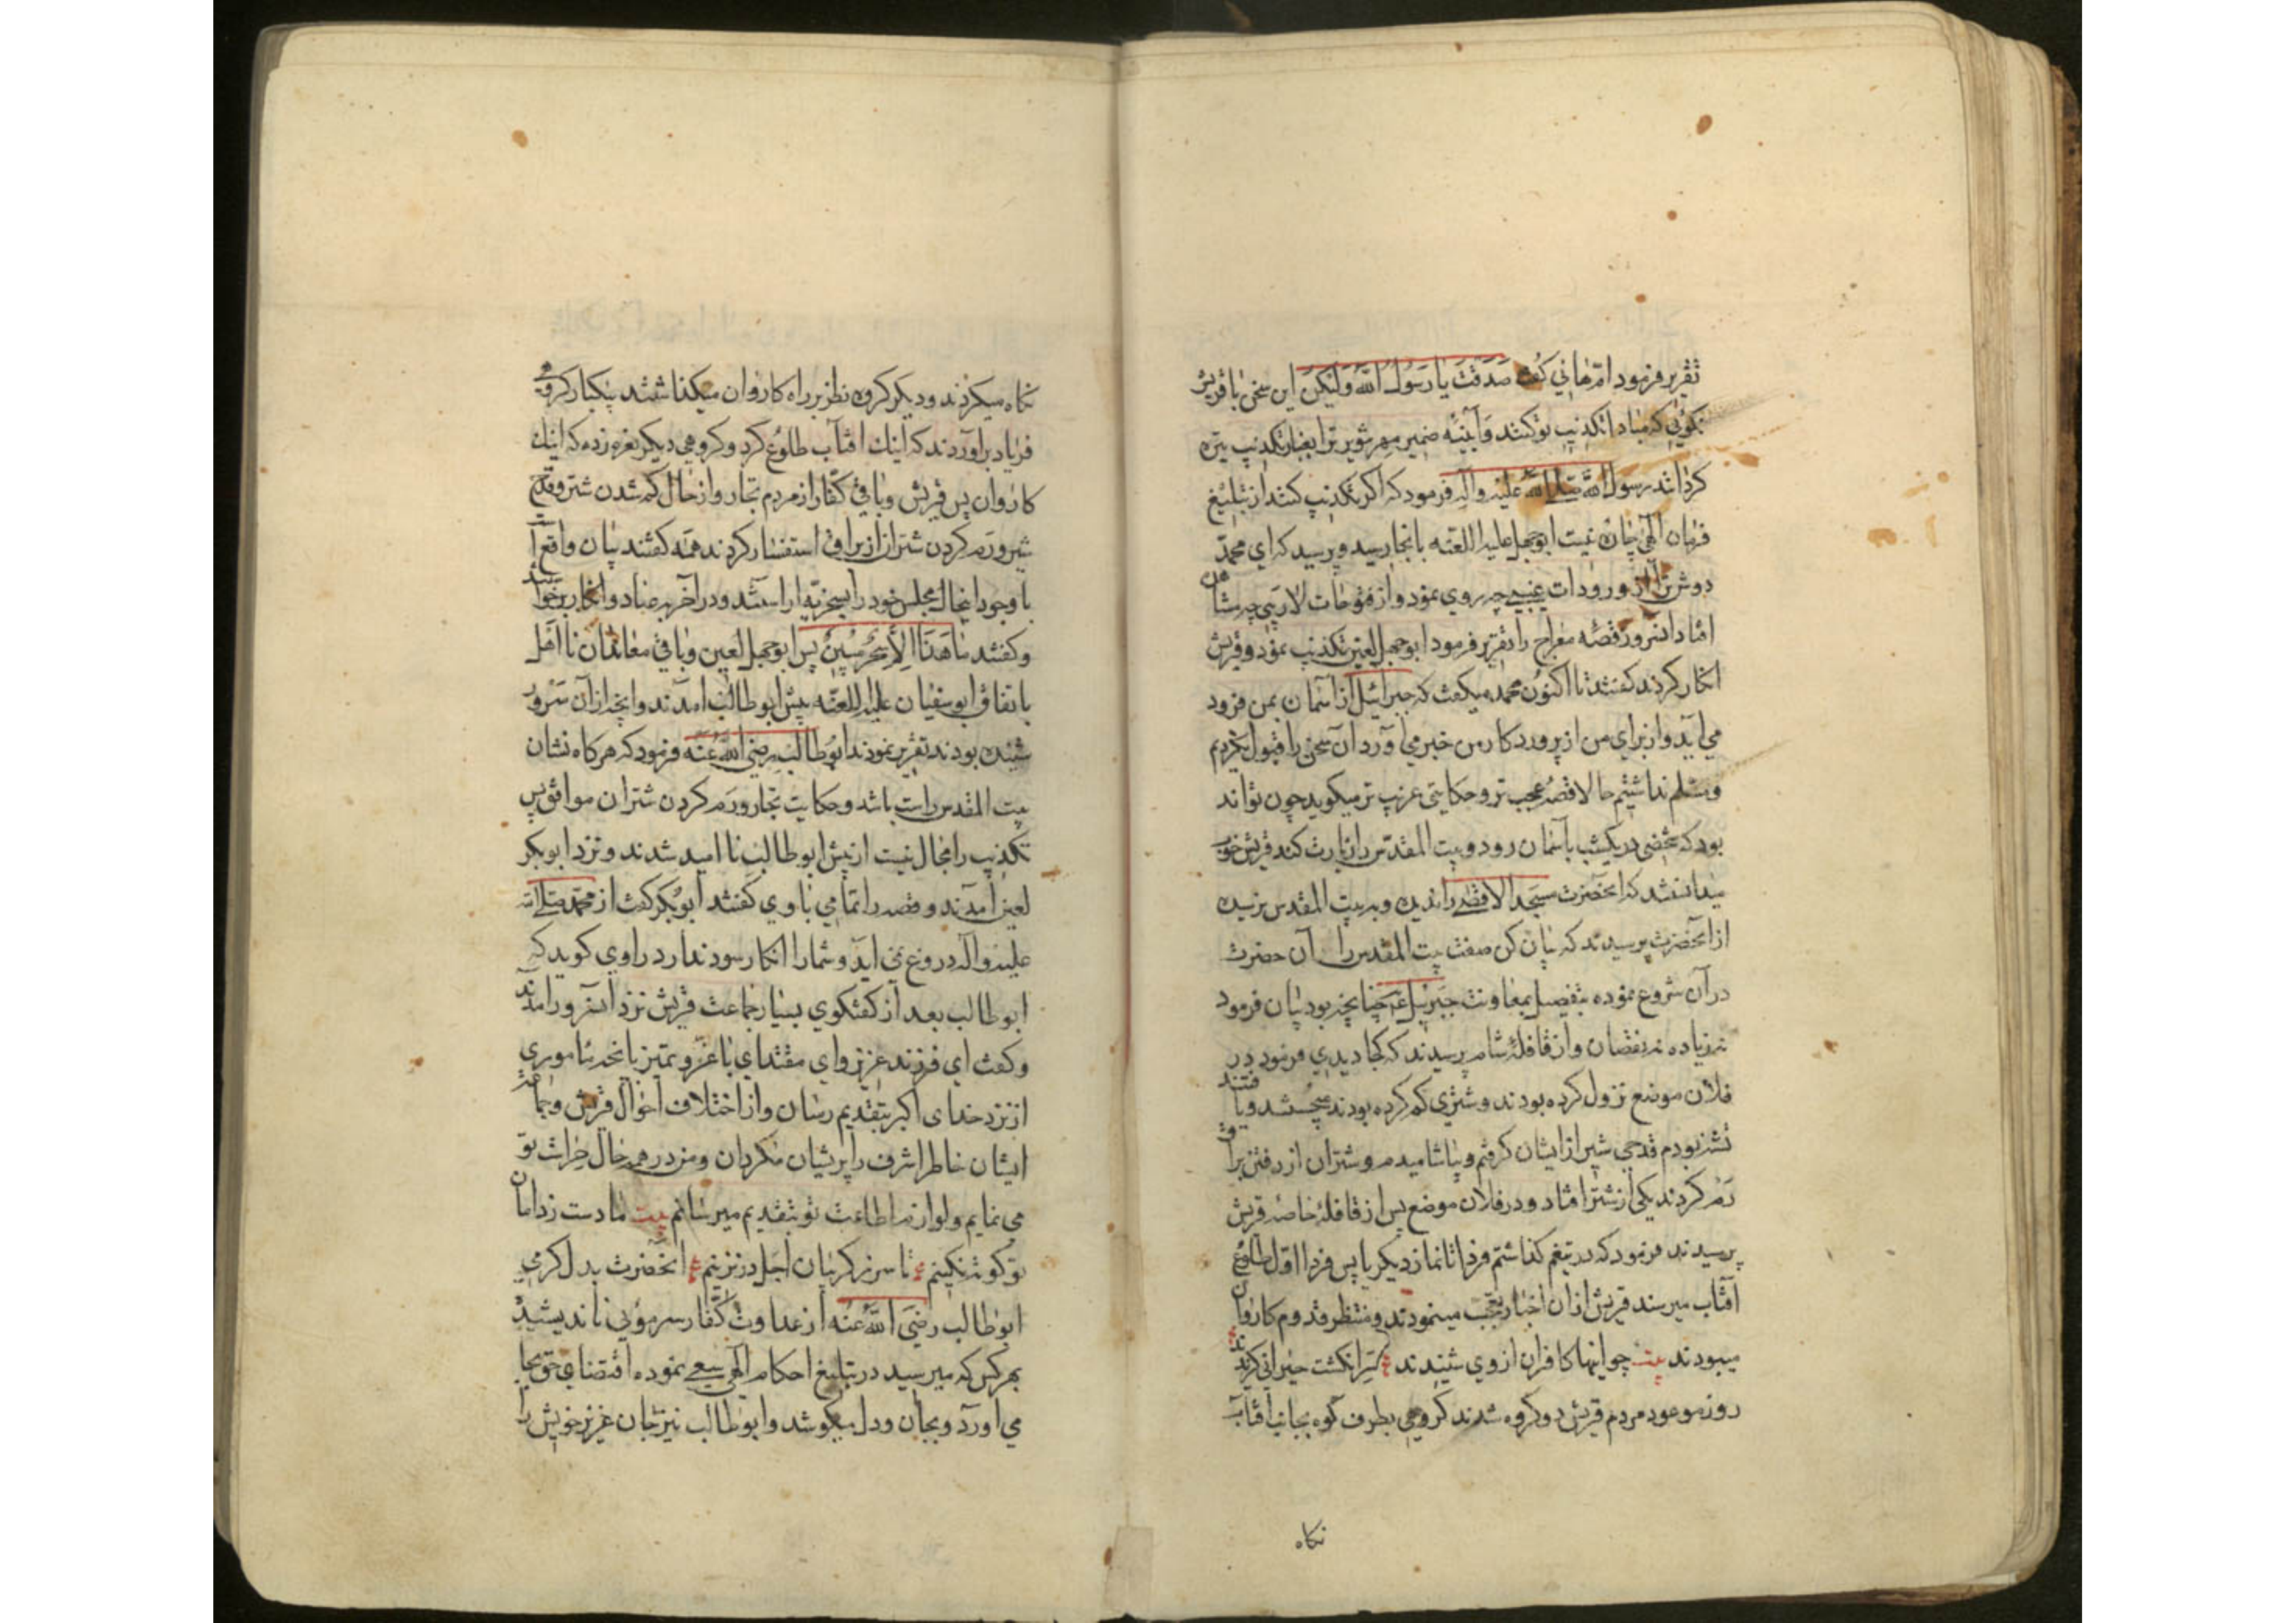 تقریر فرمود ام هانی کفت صَدَقتَ یا رَسُولَ اللَّه وَلیکنْ این سخن با قریش
نکوئی که مبادا تکذیب تو کنند و آینهٔ ضمیر مهر تنویر ترا بغبار تکذیب تیره
کردانند رسول اللّه صلی اللّه علیه وآله فرمود که اکر تکذیب کنند از تبلیغ
فرمان الهی چاره نیست ابوجهل علیه اللعنه بانجا رسید و پرسید که ای محمد
دوش ترا از ورودات غیبی چه روی نمود و از فتوحات لاریبی چه نشان
افتاد انسرور قصهٔ معراج را تقریر فرمود ابوجهل لعین تکذیب نمود و قریش
انکار کردند کفتند تا اکنون محمد میکفت که جبرائیل از آسمان بمن فرود
می آید و از برای من از پروردکار من خبر می آورد آن سخن را قبول نکردیم
و مسلم نداشتیم حالا قصهٔ عجب تر و حکایتی غریب تر میکوید چون تواند
بود که شخصی در یکشب بآسمان رود و بیت المقدّس را زیارت کند قریش خود
میدانستند که انحضرت مسجد الاقصی را ندیده و به بیت المقدس نرسیده
از انحضرت پرسیدند که بیان کن صفت بیت المقدس را آن حضرت
در آن شروع نموده بتفصیل بمعاونت جبرئیل عم چنانچه بود بیان فرمود
نه زیاده نه نقصان و از قافلهٔ شام پرسیدند که کجا دیدی فرمود در
فلان موضع نزول کرده بودند و شتری کم کرده بودند میجستند و یافتند
تشنه بودم قدحی شیر از ایشان کرفتم و بیاشامیدم و شتران از رفتن براق
رم کردند یکی از شتر افتاد و در فلان موضع پس از قافلهٔ خاصهٔ قریش
پرسیدند فرمود که در تنعیم کذاشتم فردا تا نماز دیکر یا پس فردا اول طلوع
آفتاب میرسند قریش ازان اخبار تعجب مینمودند و منتظر قدوم کاروان
میبودند بیت چو اینها کافران از وی شنیدند سر انکشت حیرانی کزیدند
روز موعود مردم قریش دو کروه شدند کروهی بطرف کوه بجانب آفتاب
نکاه
نکاه میکردند و دیکر کروه نظر بر راه کاروان میکذاشتند یکبار کروهی
فریاد براوردند که اینك افتاب طلوع کرد و کروهی دیکر نعره زده که اینك
کاروان پس قریش و باقی کفار از مردم تجار و از حال کم شدن شتر و قدح
شیر و رم کردن شتران از براق استفسار کردند همه کفتند بیان واقع است
با وجود اینحال مجلس خود را بسخریّه اراستند و در آخر بر عناد و انکار برخواستند
و کفتند ما هَذَا اِلاّ سِحْرٌ مُبِینٌ پس ابوجهل لعین و باقی معاندان نا اهل
باتفاق ابوسفیان علیه اللعنه پیش ابوطالب امدند و انچه از آن سرور
شنیده بودند تقریر نمودند ابوطالب رضی اللّه عنه فرمود که هرکاه نشان
بیت المقدس راست باشد و حکایت تجار و رم کردن شتران موافق پس
تکذیب را مجال نیست از پیش ابوطالب نا امید شدند و نزد ابوبکر
لعین آمدند و قصه را تمامی با وی کفتند ابوبکر کفت از محمد صلی اللّه
علیه و آله دروغ نمی اید و شما را انکار سود ندارد راوی کوید که
ابوطالب بعد از کفتکوی بسیار جماعت قریش نزد انسرور آمدند
و کفت ای فرزند عزیز وای مقتدای با عز و تمیز بانچه مأموری
از نزد خدای اکبر بتقدیم رسان و از اختلاف احوال قریش و جماعت
ایشان خاطر اشرف را پریشان مکردان و من در همه حال حراست تو
می نمایم و لوازم اطاعت تو بتقدیم میرسانم بیت ما دست ز دامان
تو کوته نکنیم تا سر ز کریبان اجل در نزنیم انحضرت بدل کرمی
ابوطالب رضی اللّه عنه از عداوت کفار سر موئی نا ندیشید
بهر کس که میرسید در تبلیغ احکام الهی سعی نموده اقتضای حق بجا
می اورد و بجان و دل میکوشد و ابوطالب نیز جان عزیز خویش را